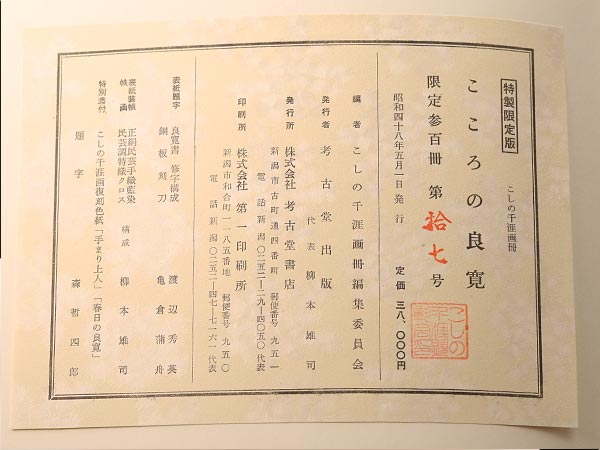 特製限定版
こしの千涯画冊
こころの良寛
限定参百冊 第拾七号
昭和四十八年五月一日 発行 定価 三八、〇〇〇円
編者 こしの千涯画冊編集委員会
発行者 考古堂出版
代表 柳本雄司
発行所 株式会社 考古堂書店
新潟市古町通四番町 郵便番号 九五一
電話 新潟〇二五二-二九-四〇五〇代表
印刷所 株式会社 第一印刷所
新潟市和合町一一八五番地 郵便番号 九五〇
電話 新潟〇二五二-四七-七一六一代表
表紙題字 良寛書 修字構成 渡辺秀英
銅板刻刀 亀倉蒲舟
表紙装幀 正絹民芸手織藍染
帙・函 民芸調特織クロス 構成 柳本雄司
特別添付 こしの千涯画復刻色紙「手まり上人」「春日の良寛」
題字 森哲四郎